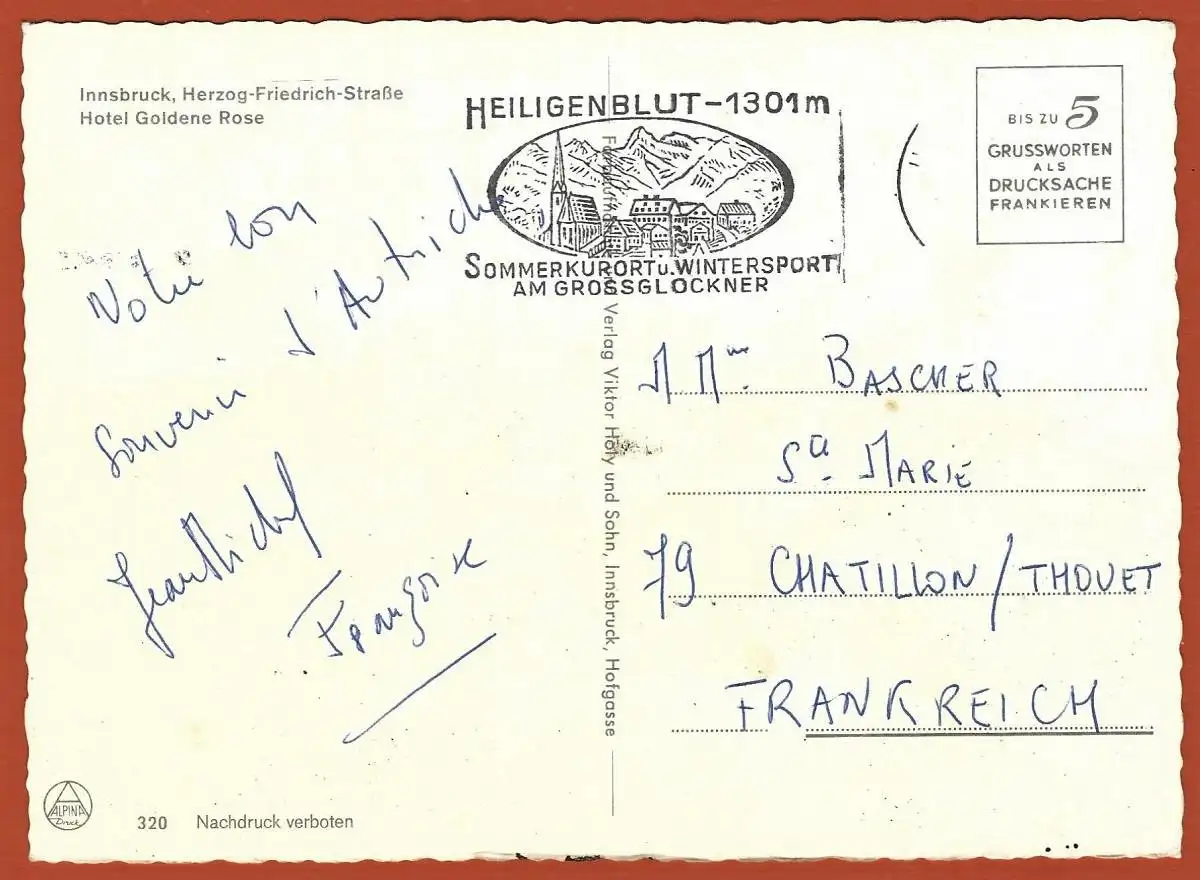 Innsbruck, Herzog-Friedrich-Straße
Hotel Goldene Rose
HEILIGENBLUT-1301m
SOMMERKURORT u. WINTERSPORT
AM GROSSGLOCKNER
BIS ZU 5
GRUSSWORTEN
ALS
DRUCKSACHE
FRANKIEREN
Notre bon
souvenir d'Autriche
Jean Michel
Françoise
Verlag Viktor Höfy und Sohn, Innsbruck, Hofgasse
M Mme BASCHER
Ste MARIE
79 CHATILLON/THOUET
FRANKREICH
ALPINA
Druck
320 Nachdruck verboten